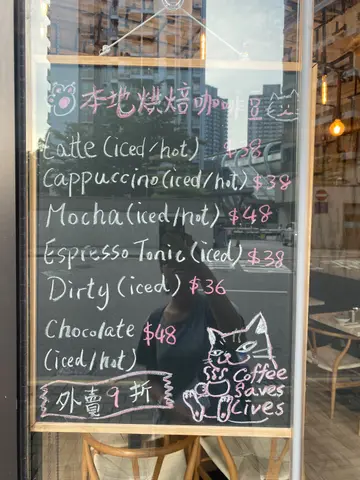 本地烘焙咖啡
Latte (iced/hot) $38
Cappuccino (iced/hot) $38
Mocha (iced/hot) $48
Espresso Tonic (iced) $38
Dirty (iced) $36
Chocolate $48
(iced/hot)
外賣9折
Coffee
Saves
Lives